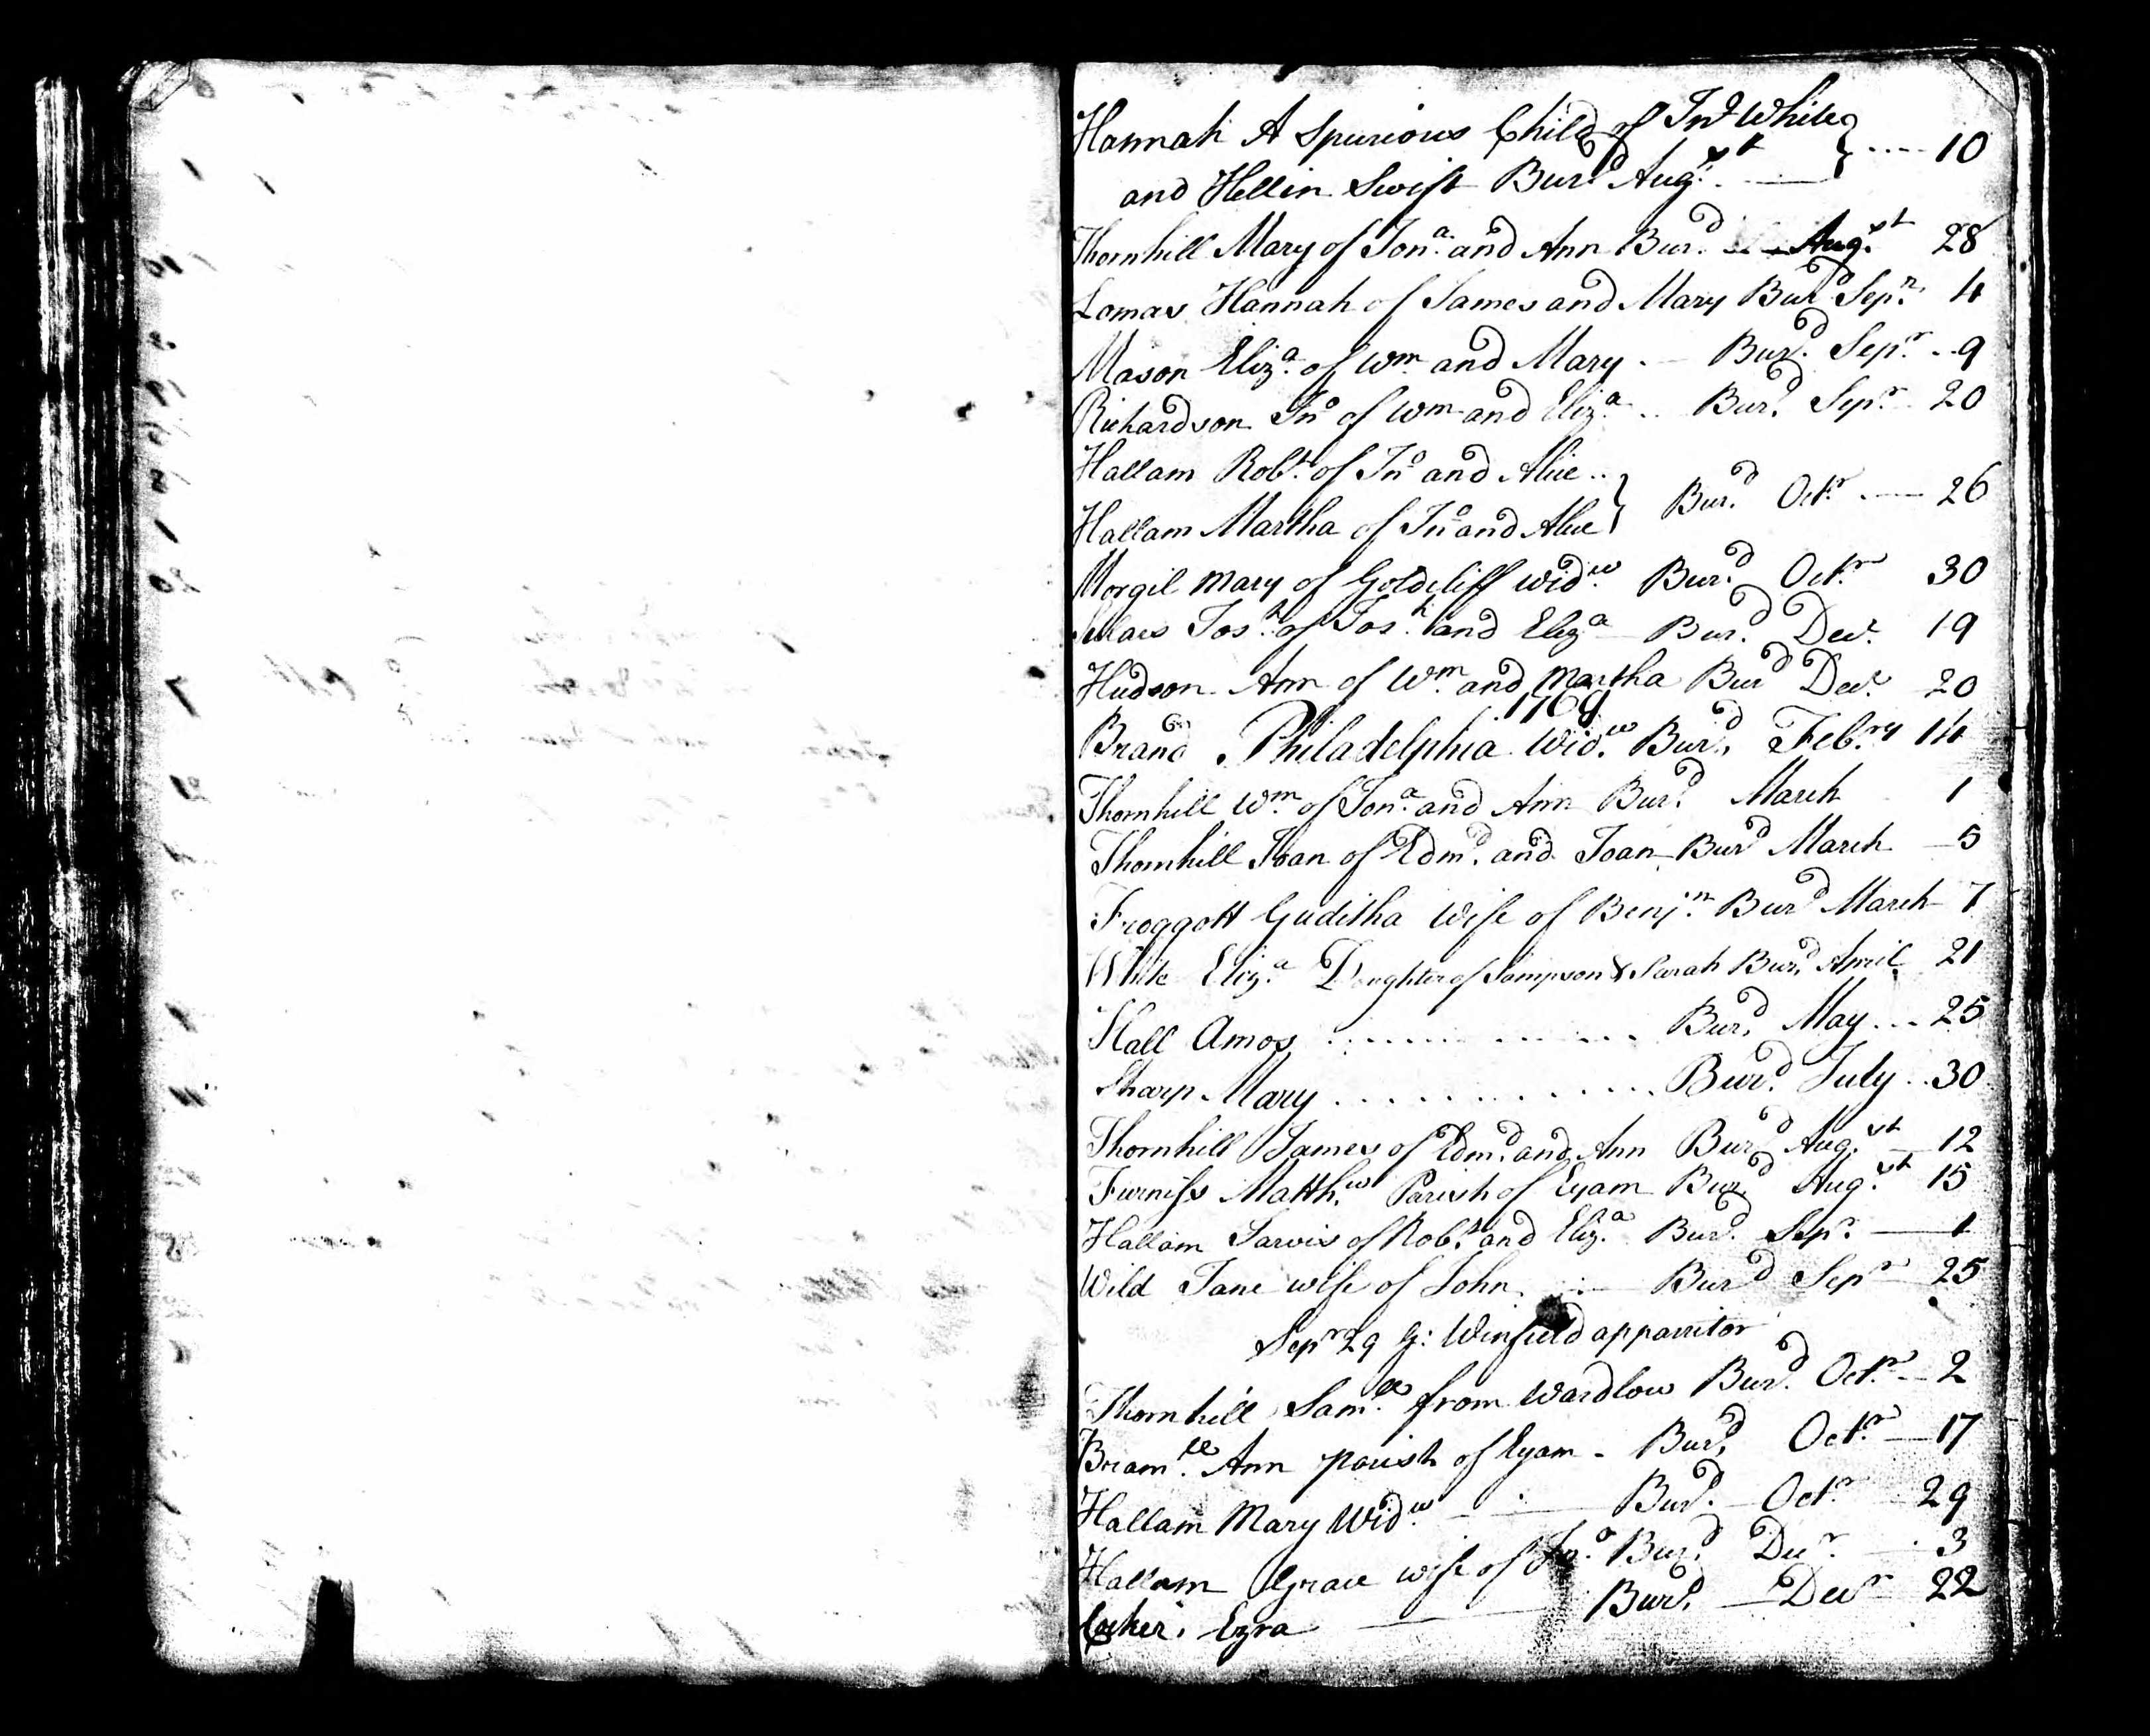 Hannah A Spurious Child of Jno White } .... 10
and Hellin Swift Burd Augst
Thornhill Mary of Jona and Ann Burd Augst 28
Lomas Hannah of James and Mary Burd Sepr 4
Mason Eliza of Wm and Mary Burd Sepr 9
Richardson Jno of Wm and Eliza Burd Sepr 20
Hallam Robt of Jno and Alice .. } Burd Octr 26
Hallam Martha of Jno and Alice
Morgil Mary of Goldcliff Widw Burd Octr 30
Josh of Josh and Eliza Burd Decr 19
Hudson Ann of Wm and Martha Burd Decr 20
1769
Brand Philadelphia Widw Burd Febry 14
Thornhill Wm of Jona and Ann Burd March 1
Thornhill Joan of Edmd and Joan Burd March 5
Froggott Guditha Wife of Benjn Burd March 7
White Eliza Daughter of Sampson & Sarah Burd April 21
Hall Amos ............ Burd May ... 25
Sharp Mary ............ Burd July .. 30
Thornhill James of Edmd and Ann Burd Augst 12
Furniss Matthw Parish of Eyam Burd Augst 15
Hallam Jarvis of Robt and Eliza Burd Sepr 1
Wild Jane wife of John Burd Sepr 25
Sepr 29 G: Winfield apparritor
Thornhill Samll from Wardlow Burd Octr 2
Bramll Ann parish of Eyam - Burd Octr 17
Hallam Mary Widw Burd Octr 29
Hallam Grace wife of Jno Burd Decr 3
Cocker Ezra Burd Decr 22